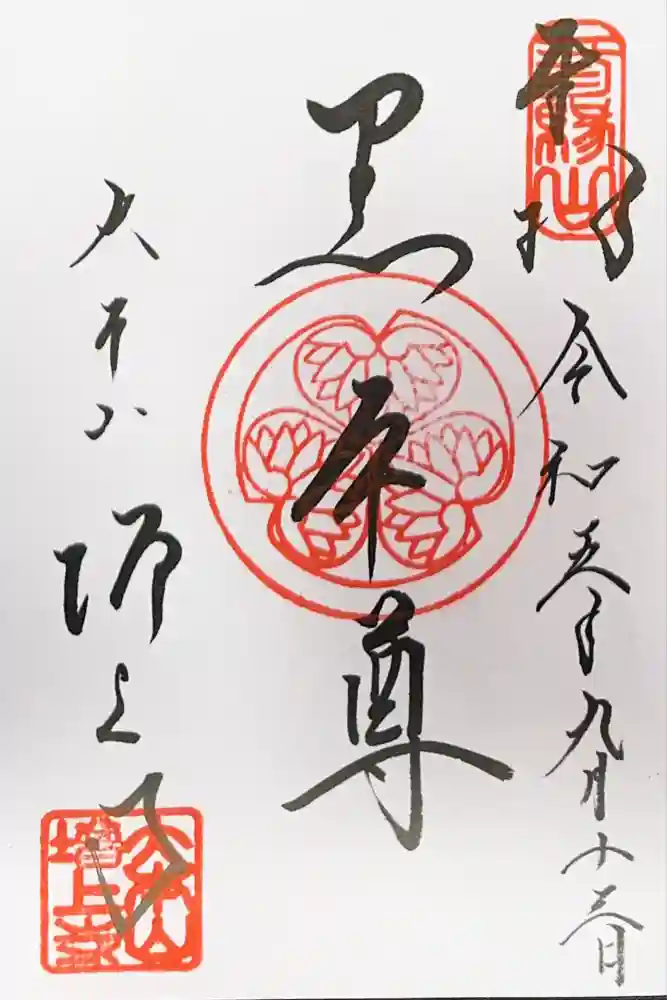 奉拝
令和五年九月十五日
黒本尊
大本山
増上寺
三縁山
大本山
増上寺